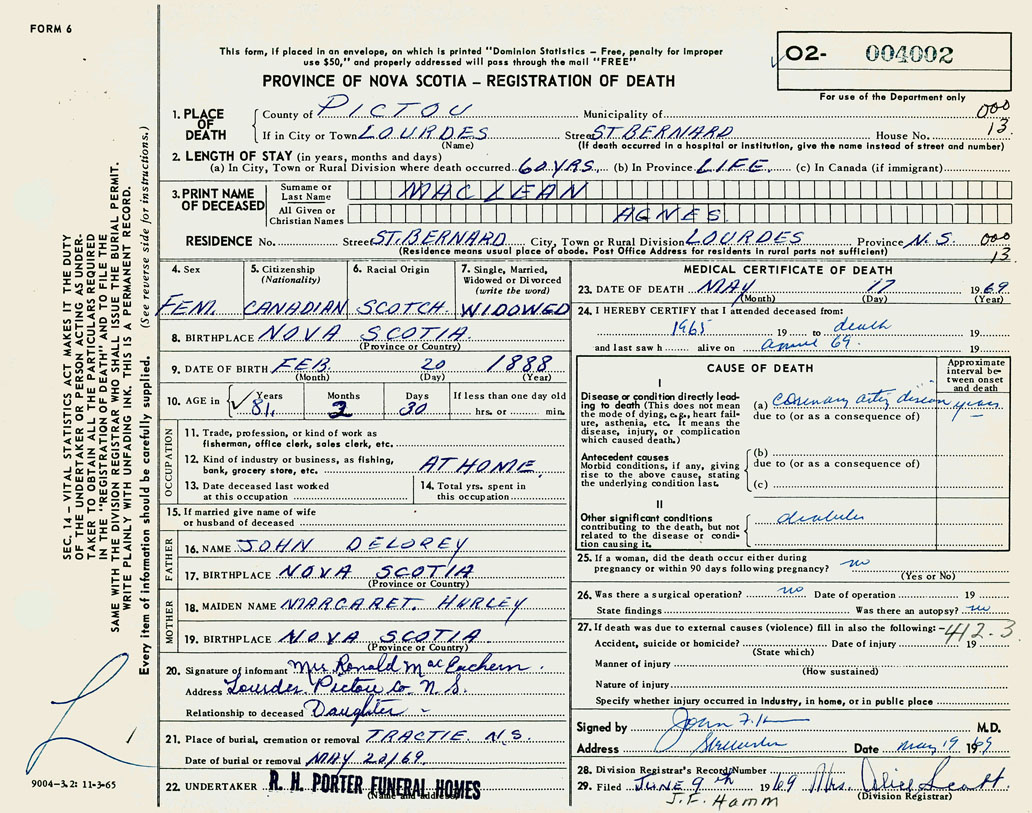 FORM 6
This form, if placed in an envelope, on which is printed "Dominion Statistics – Free, penalty for improper
use $50," and properly addressed will pass through the mail "FREE"
O2- 004002
PROVINCE OF NOVA SCOTIA – REGISTRATION OF DEATH
For use of the Department only
1. PLACE OF DEATH County of PICTOU Municipality of 000
If in City or Town LOURDES Street ST BERNARD House No. 13
(Name) (If death occurred in a hospital or institution, give the name instead of street and number)
2. LENGTH OF STAY (in years, months and days)
(a) In City, Town or Rural Division where death occurred 60 YRS. (b) In Province LIFE. (c) In Canada (if immigrant)
3. PRINT NAME OF DECEASED Surname or Last Name MACLEAN
All Given or Christian Names AGNES
RESIDENCE No. Street ST. BERNARD City, Town or Rural Division LOURDES Province N.S. 000
(Residence means usual place of abode. Post Office Address for residents in rural parts not sufficient) 13
4. Sex FEM.
5. Citizenship (Nationality) CANADIAN
6. Racial Origin SCOTCH
7. Single, Married, Widowed or Divorced (write the word) WIDOWED
8. BIRTHPLACE NOVA SCOTIA
(Province or Country)
9. DATE OF BIRTH FEB. 20 1888
(Month) (Day) (Year)
10. AGE in Years Months Days If less than one day old
81. 2 30 hrs. or min.
OCCUPATION
11. Trade, profession, or kind of work as
fisherman, office clerk, sales clerk, etc.
12. Kind of industry or business, as fishing,
bank, grocery store, etc. AT HOME.
13. Date deceased last worked
at this occupation
14. Total yrs. spent in
this occupation
15. If married give name of wife
or husband of deceased
FATHER
16. NAME JOHN DELOREY
17. BIRTHPLACE NOVA SCOTIA
(Province or Country)
MOTHER
18. MAIDEN NAME MARGARET. HURLEY
19. BIRTHPLACE NOVA SCOTIA
(Province or Country)
20. Signature of informant Mrs Ronald MacEachern.
Address Lourdes Pictou Co N.S.
Relationship to deceased Daughter
21. Place of burial, cremation or removal TRACTIE N.S.
Date of burial or removal MAY 20/69.
22. UNDERTAKER R. H. PORTER FUNERAL HOMES
(Name and address)
MEDICAL CERTIFICATE OF DEATH
23. DATE OF DEATH MAY 17 1969
(Month) (Day) (Year)
24. I HEREBY CERTIFY that I attended deceased from:
1965 19 to death
and last saw h alive on april 69. 19
CAUSE OF DEATH
Approximate interval between onset and death
I
Disease or condition directly leading to death (This does not mean the mode of dying, e.g., heart failure, asthenia, etc. It means the disease, injury, or complication which caused death.)
(a) coronary artery disease years
due to (or as a consequence of)
Antecedent causes
Morbid conditions, if any, giving rise to the above cause, stating the underlying condition last.
(b)
due to (or as a consequence of)
(c)
II
Other significant conditions
contributing to the death, but not related to the disease or condition causing it.
diabetes
25. If a woman, did the death occur either during
pregnancy or within 90 days following pregnancy? no
(Yes or No)
26. Was there a surgical operation? no Date of operation 19
State findings Was there an autopsy? no
27. If death was due to external causes (violence) fill in also the following: -412.3
Accident, suicide or homicide? Date of injury 19
(State which)
Manner of injury
(How sustained)
Nature of injury
Specify whether injury occurred in Industry, in home, or in public place
Signed by John F. M.D.
Address Date may 19 1969
28. Division Registrar's Record Number
29. Filed JUNE 9th 1969 Mrs. Alice Scott
J.F. Hamm (Division Registrar)
SEC. 14 – VITAL STATISTICS ACT MAKES IT THE DUTY
OF THE UNDERTAKER OR PERSON ACTING AS UNDER-
TAKER TO OBTAIN ALL THE PARTICULARS REQUIRED
IN THE "REGISTRATION OF DEATH" AND TO FILE THE
SAME WITH THE DIVISION REGISTRAR WHO SHALL ISSUE THE BURIAL PERMIT.
WRITE PLAINLY WITH UNFADING INK. THIS IS A PERMANENT RECORD.
Every item of information should be carefully supplied. (See reverse side for instructions.)
9004–3.2: 11-3-65